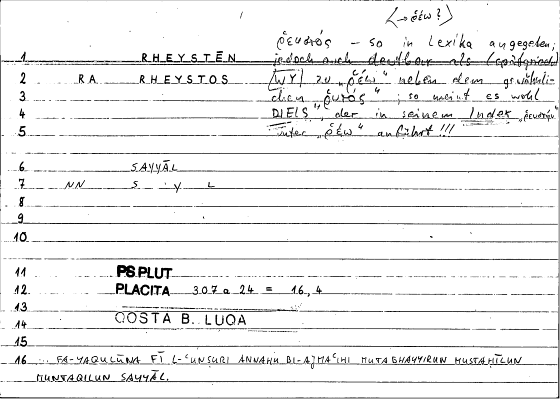 (→ ῥέω?)
ῥευστός – so in Lexika angegeben;
1 RHEYSTĒN jedoch auch deutbar als (spätgriech.)
2 RA RHEYSTOS [WY] zu „ῥέω" neben dem gewöhnli-
3 chen „ῥυτός"; so meint es wohl
4 DIELS, der in seinem Index „ῥευστός"
5 unter „ῥέω" anführt!!!
6 SAYYĀL
7 NN S Y L
8
9
10
11 PS.PLUT
12 PLACITA 307 a 24 = 16,4
13
14 QOSTA B. LUQA
15
16 FA-YAQULŪNA FĪ L-ʿUNṢURI ANNAHU BI-AǦMAʿIHI MUTAGHAYYIRUN MUSTAḤĪLUN
MUNTAQILUN SAYYĀL.